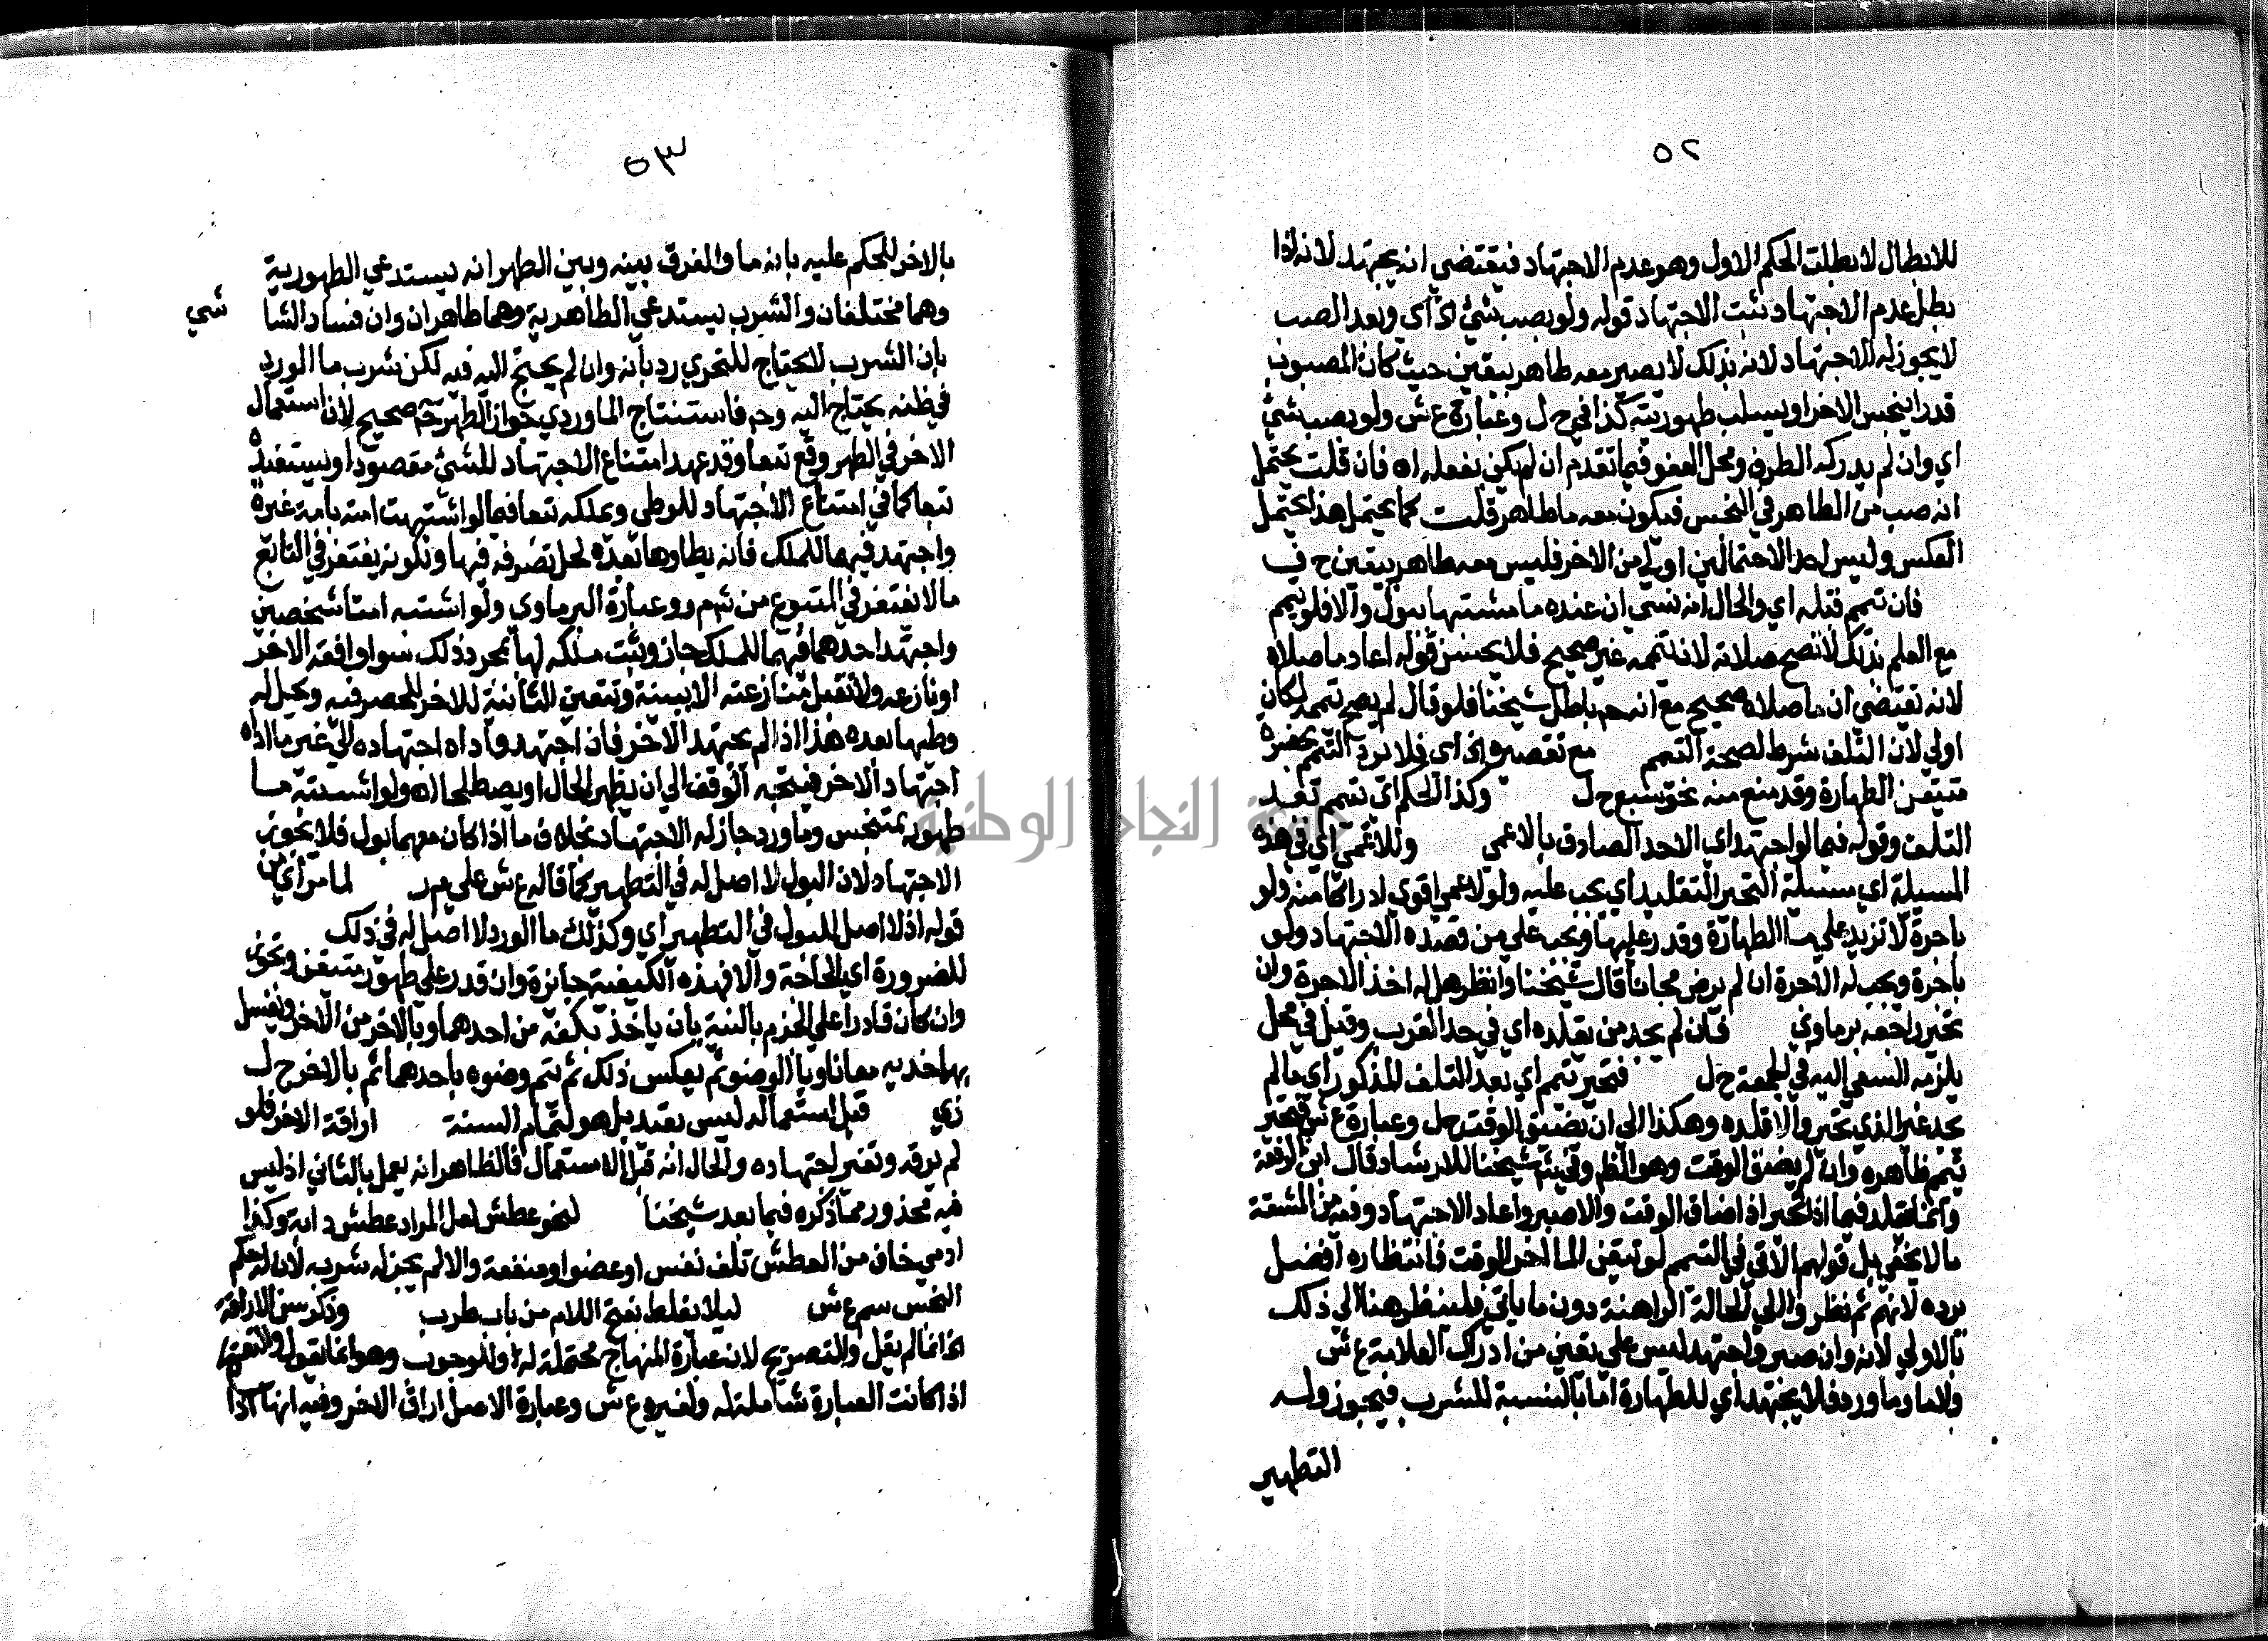 ٥٢
للابطال لا بطلت الحكم الاول وهو عدم الاجتهاد فيقتضي انه يجتهد لانه اذا
بطل عدم الاجتهاد ثبت الاجتهاد قوله ولو بصب شئ اي وبعد الصب
لا يجوز له الاجتهاد لانه بذلك لا يصير معه طاهر بيقين حيث كان المصبوب
قدرا ينجس الاخر او يسلب طهوريته كذا في ح ل وعبارة ع ش ولو بصب شئ
اي وان لم يدركه الطرف ومحل العفو فيما تقدم ان لم يكن بفعله اه فان قلت يحتمل
انه صب من الطاهر في النجس فيكون معه ما طاهر قلت كما يحتمل هذا يحتمل
العكس وليس احد الاحتمالين اولي من الاخر فليس معه طاهر بيقين ح ف
فان تيمم قبله اي والحال انه نسي ان عنده ما مشتبها ببول والا فلو تيمم
مع العلم بذلك لا تصح صلاته لان تيممه غير صحيح فلا يحسن قوله اعاد ما صلاه
لانه يقتضي ان ما صلاه صحيح مع انه باطل شيخنا فلو قال لم يصح تيممه لكان
اولي لان التلف شرط لصحة التيمم مع تقصيره اي فلا يرد التيمم بحضرة
متيقن الطهارة وقد منع منه نحو سبع ح ل وكذا الحكم اي تيمم بعد
التلف وقوله فيما لو اجتهد اي الاحد الصادق بالاعمى وللاعمى اي في هذه
المسيلة اي مسيلة التحير التقليد اي يجب عليه ولو لاعمي اقوي ادراكا منه ولو
باجرة لا تزيد على ما الطهارة وقدر عليها ويجب علي من قصده الاجتهاد ولو
باجرة ويجب له الاجرة ان لم يرض مجانا قال شيخنا وانظر هل له اخذ الاجرة وان
تحير راجعه برماوي فان لم يجد من يقلده اي في حد القرب وقيل في محل
يلزمه السعي اليه في الجمعة ح ل فتحير تيمم اي بعد التلف المذكور اي ما لم
يجد غير الذي تحير والا قلده وهكذا الي ان يضيق الوقت ح ل وعبارة ع ش فتحير
تيمم ظاهره وان لم يضق الوقت وهو شيخنا للارشاد قال ابن الرفعة
وانما يقلد فيما اذا تحير اذا ضاق الوقت والا صبر واعاد الاجتهاد وفيه من المشقة
ما لا يخفي بل قولهم الاتي في التيمم لو تيقن الما اخر الوقت فانتظاره افضل
يرده لانهم ثم نظروا الي الحالة الراهنة دون ما ياتي فلينظر هنا الي ذلك
بالاولي لانه وان صبر واجتهد ليس علي يقين من ادراك العلامة ع ش
ولا ما وما ورد فلا يجتهد اي للطهارة اما بالنسبة للشرب فيجوز وله
التطهير
٥٣
بالاخر للحكم عليه بانه ما والفرق بينه وبين الطهر انه يستدعي الطهورية
وهما مختلفان والشرب يستدعي الطاهرية وهما طاهران وان فساد الشا
شي
بان الشرب لا يحتاج للتحري رد بانه وان لم يحتج اليه فيه لكن شرب ما الورد
في ظنه يحتاج اليه وح فاستنتاج الماوردي جواز الطهر ح صحيح لان استعمال
الاخر في الطهر وقع تبعا وقد عهد امتناع الاجتهاد للشئ مقصودا ويستفيده
تبعا كما في امتناع الاجتهاد للوطي ويملكه تبعا فيما لو اشتبهت امته بامة غيره
واجتهد فيها للملك فانه يطاوها بعده لحل تصرفه فيها ولكونه يغتفر في التابع
ما لا يغتفر في المتبوع من ش م ر وعبارة البرماوي ولو اشتبه امتا شخصين
واجتهد احدهما فيهما للملك جاز ويثبت ملكه لها بمجرد ذلك سوا وافقه الاخر
او نازعه ولا تقبل منازعته الا ببينة وتتعين الثانية للاخر للحصر فيه ويحل له
وطيها بعده هذا اذا لم يجتهد الاخر فان اجتهد واداه اجتهاده الي غير ما اداه
اجتهاد الاخر فيتجه الوقف الي ان يظهر الحال او يصطلحا اه ولو اشتبه ما
طهور بمتنجس وما ورد جاز له الاجتهاد بخلاف ما اذا كان معهما بول فلا يجوز
الاجتهاد لان البول لا اصل له في التطهير كما قاله ع ش علي م ر لما مر اي من
قوله اذ لا اصل للبول في التطهير اي وكذلك ما الورد لا اصل له في ذلك
للضرورة اي للحاجة والا فهذه الكيفية جايزة وان قدر على طهور متيقن
وان كان قادرا علي الجزم بالنية بان ياخذ بكفه من احدهما وبالاخر من الاخر ويغسل
بها خديه معا ناويا الوضو ثم يعكس ذلك ثم يتم وضوه باحدهما ثم بالاخر ح ل
زي قبل استعماله ليس بقيد بل هو لتمام السنة اراقة الاخر فلو
لم يرقه وتغير اجتهاده والحال انه قبل الاستعمال فالظاهر انه يعمل بالثاني اذ ليس
فيه محذور مما ذكره فيما بعد شيخنا لنحو عطش لعل المراد عطش دابة وكذا
ادمي خاف من العطش تلف نفس او عضو او منفعة والا لم يجز له شربه لان له حكم
النجس سم ع ش ليلا يغلط بفتح اللام من باب طرب وذكر سن الاراقة
انما لم يقل والتصريح لان عبارة المنهاج محتملة له وللوجوب وهو انما يقول
اذا كانت العبارة شاملة له ولغيره ع ش وعبارة الاصل اراق الاخر وفيه انها اذا
جامعة النجاح الوطنية